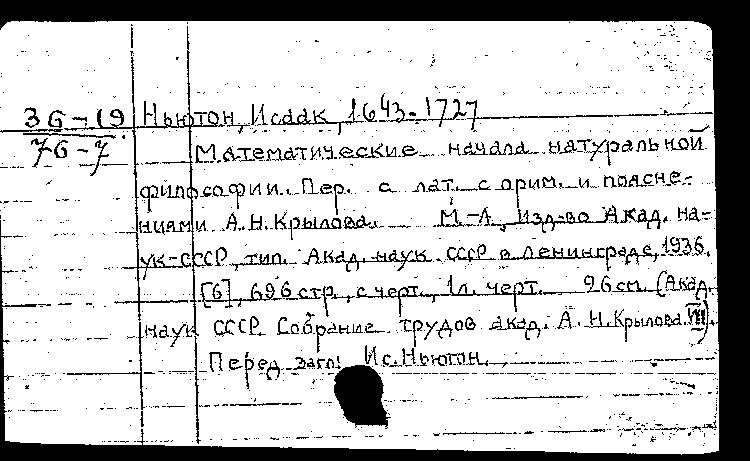 36-19 Ньютон, Исаак, 1643-1727
76-7 Математические начала натуральной
философии. Пер. с лат. с прим. и поясне-
ниями А.Н.Крылова. М.-Л., Изд-во Акад. на-
ук СССР, тип. Акад. наук СССР в Ленинграде, 1936.
[6], 696 стр., с черт., 1 л. черт. 26 см. (Акад.
наук СССР. Собрание трудов акад. А.Н.Крылова. VII).
Перед загл: Ис. Ньютон.